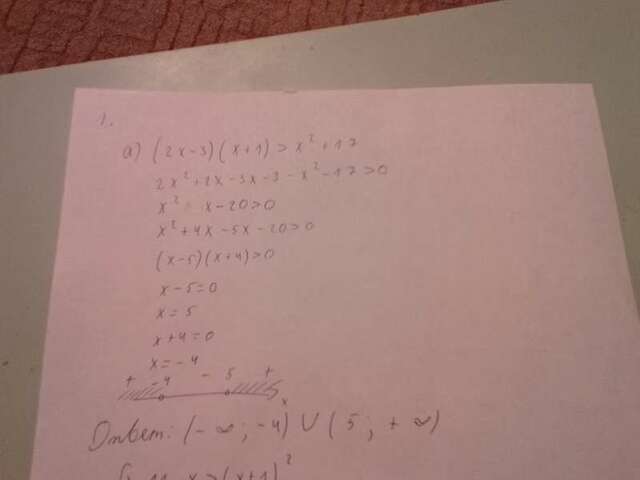 1.
а) (2x-3)(x+1)>x²+17
2x²+2x-3x-3-x²-17>0
x² x-20>0
x²+4x-5x-20>0
(x-5)(x+4)>0
x-5=0
x=5
x+4=0
x=-4
+ -4 - 5 + x
Ответ: (-∞; -4) ∪ (5; +∞)
x>(x+1)²